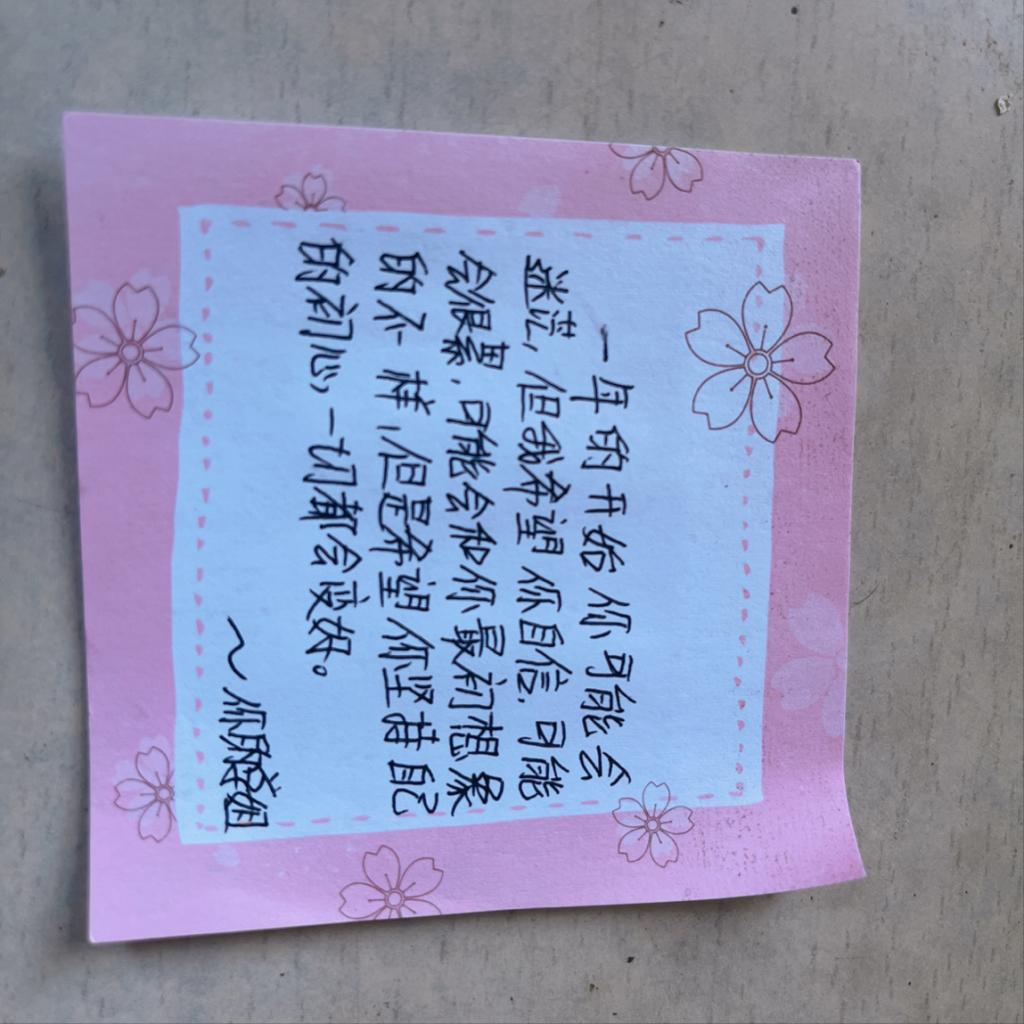 一年的开始你可能会
迷茫,但我希望你自信.可能
会很累.可能会和你最初想象
的不一样,但是希望你坚持自己
的初心,一切都会变好。
~你的学姐